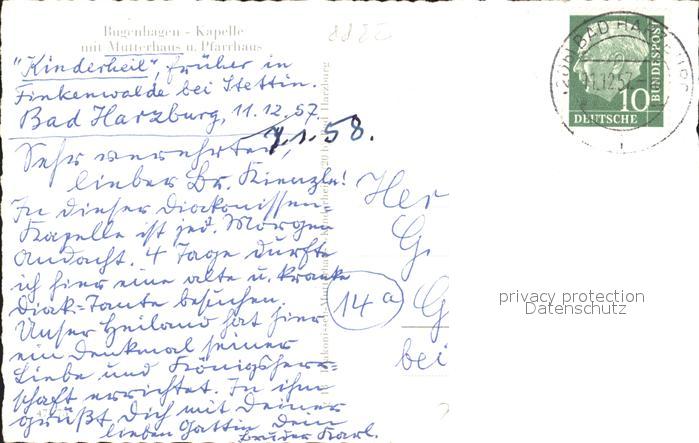 Bugenhagen - Kapelle
mit Mutterhaus u. Pfarrhaus
"Kinderheil", früher in
Finkenwalde bei Stettin.
Bad Harzburg, 11.12.57.
7.1.58.
Sehr verehrter,
lieber Br. Kienzle!
In dieser Diakonissen-
Kapelle ist jed. Morgen
Andacht. 4 Tage durfte
ich hier eine alte u. kranke
Diak.-Tante besuchen.
Unser Heiland hat hier
ein Denkmal seiner
Liebe und Königsherr-
schaft errichtet. In ihm
grüßt Dich mit Deiner
lieben Gattin Dein
Bruder Karl.
14a
Her
G.
G
bei
BAD HARZBURG
11.12.57
10
DEUTSCHE
BUNDESPOST
privacy protection
Datenschutz